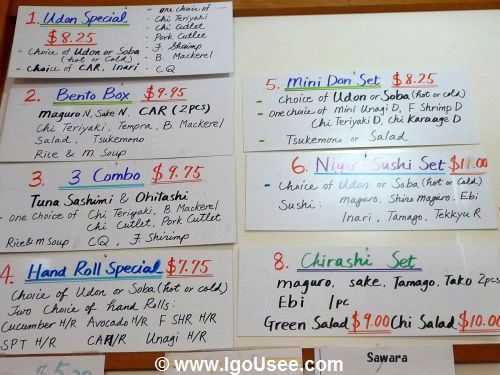 1. Udon Special
$8.25
- Choice of Udon or Soba
(hot or cold)
- Choice of CAR, Inari
- one choice of ....
- Chi Teriyaki
- Chi Cutlet
- Pork Cutlet
- F Shrimp
- B. Mackerel
- CQ
2. Bento Box $9.95
maguro N, Sake N. CAR (2pcs)
Chi Teriyaki, Tempra, B. Mackerel
Salad, Tsukemono
Rice & m. Soup
3. 3 Combo $9.75
Tuna Sashimi & Ohitashi
- one Choice of Chi Teriyaki, B. Mackerel
Chi Cutlet, Pork Cutlet
Rice & m Soup CQ, F Shirimp
4. Hand Roll Special $7.75
Choice of Udon or Soba (hot or cold)
Two Choice of hand Rolls:
Cucumber H/R Avocado H/R F SHR H/R
SPT H/R CAR/R Unagi H/R
5. Mini Don Set $8.25
- Choice of Udon or Soba (hot or cold)
- One choice of mini Unagi D, F Shrimp D
Chi Teriyaki D, Chi Karaage D
- Tsukemono or Salad
6. Nigiri Sushi Set $11.00
- Choice of Udon or Soba (hot or cold)
Sushi: maguro, Shiro maguro, Ebi
Inari, Tamago, Tekkyu R
8. Chirashi Set
maguro, sake, Tamago, Tako 2pcs
Ebi 1pc
Green Salad $9.00 Chi Salad $10.00
Sawara
© www.IgoUsee.com